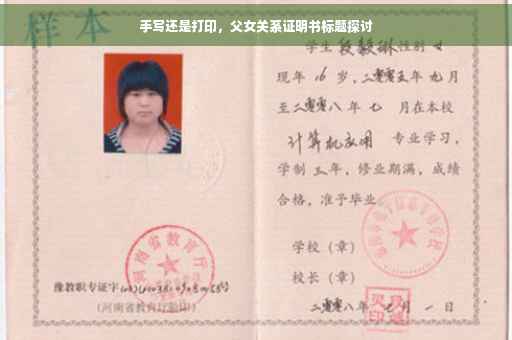 手写还是打印，父女关系证明书标题探讨
样本
学生段毅琳性别女
现年16岁，二零零五年九月
至二零零八年七月在本校
计算机应用 专业学习，
学制三年，修业期满，成绩
合格，准予毕业。
学校（章）
校长（章）
二零零八年七月一日
河南省教育厅
豫教职专证字
（河南省教育厅验印）